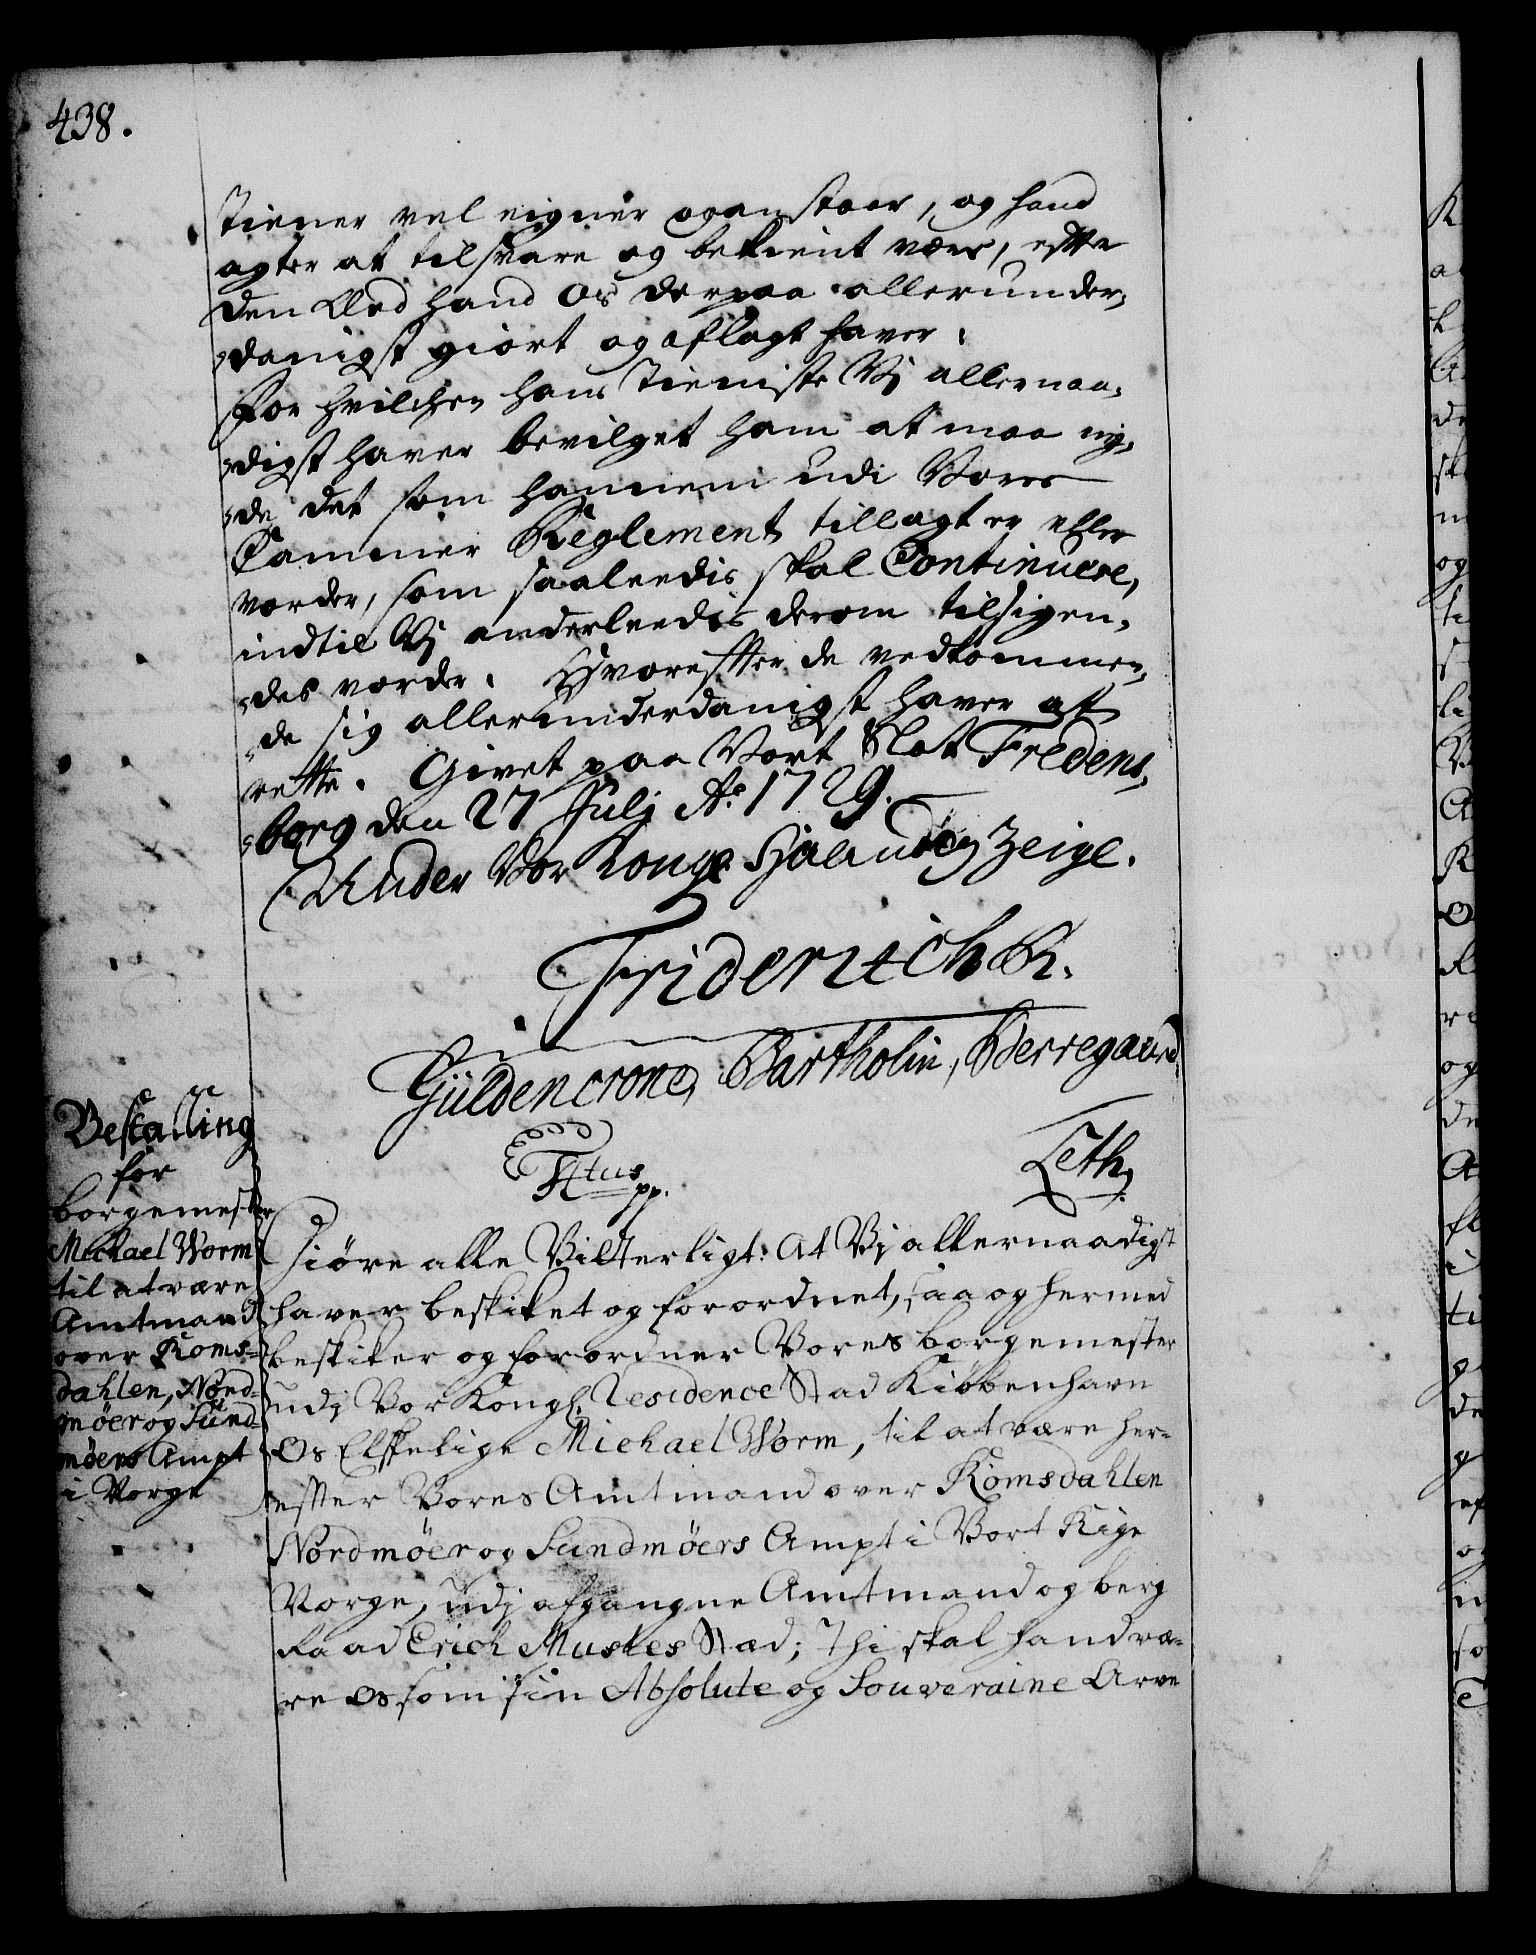 438.
Tiener vel eigner og anstaar, og hand
agter at tilsvare og bekient være, efter
den Eed hand Os derpaa allerunder,
danigst giort og aflagt haver.
For hvilchen hans Tieniste Vj allernaa,
digst haver bevilget ham at maa ny,
de, det som hannem udi Vores
Cammer Reglement tillagt er eller
vorder, som saaleedis skal Continuere,
indtil Vj anderleedis derom tilsigen,
des vorder. Hvoreffter de vedkommen,
de sig allerunderdanigst haver at
rette. Givet paa Vort Slot Fredens,
borg den 27 Julj Ao 1729.
Under Vor Kongl Haand og Zeigl.
Friderich R.
Güldencrone, Bartholin, Berregaard
Leth,
Bestalling
for
borgemester
Michael Worm
til at være
Amtmand
over Roms-
dahlen, Nord-
möer og Sund-
möers Ampt
i Norge
Ttus pp.
Giöre alle Vitterligt: At Vj allernaadigst
haver beskiket og forordnet, saa og hermed
beskiker og forordner Vores borgemester
udj Vor Kongl. Residence Stad Kiöbenhavn
Os Elskelige Michael Worm, til at være her-
effter Vores Amtmand over Romsdahlen
Nordmöer og Sundmöers Ampt i Vort Rige
Norge, udj afgangne Amtmand og berg
Raad Erich Mustes Sted; Thi skal hand væ-
re Os som sin Absolute og Souveraine Arve